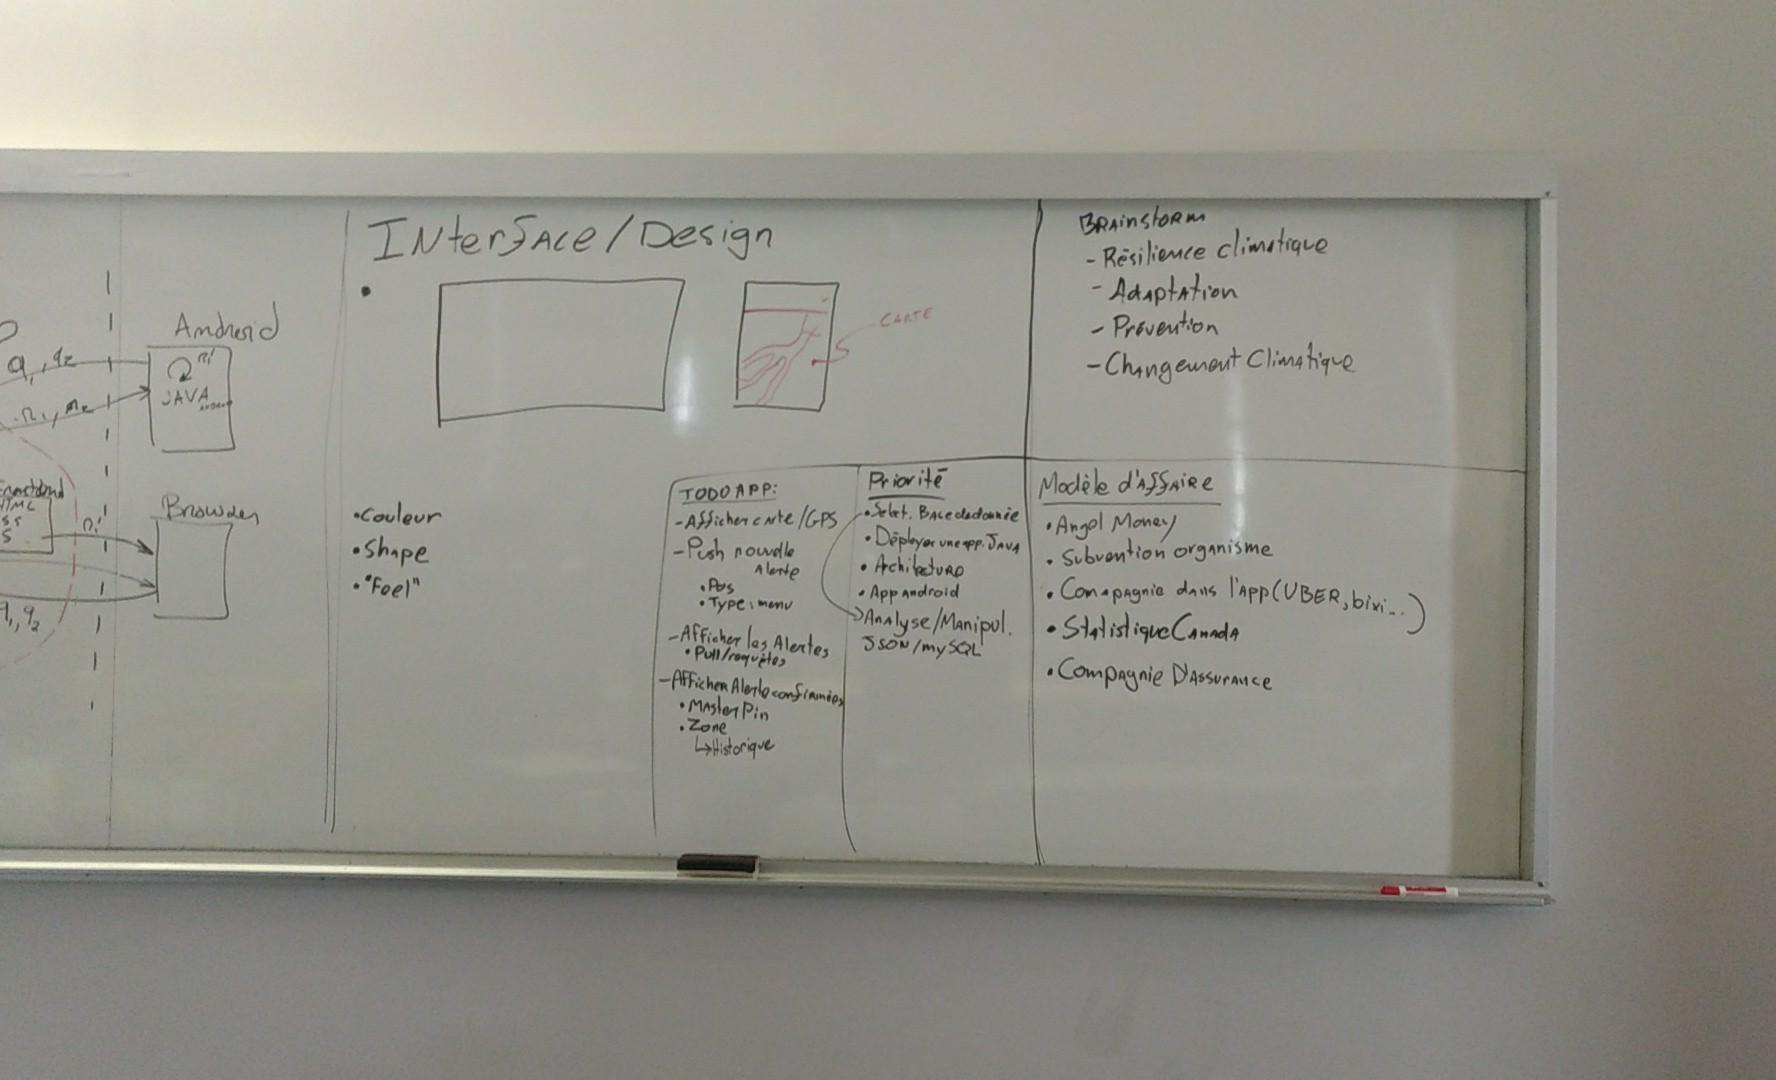 Android
q1, q2
r1'
JAVA
ANDROID
r1, r2
Frontend
HTML
r1'
Browser
q1, q2
INterfAce/Design
CARTE
•Couleur
•Shape
•"Feel"
TODO APP:
-Afficher carte/GPS
-Push nouvelle
Alerte
•Pos
•Type:menu
-Afficher les Alertes
•Pull/requêtes
-Afficher Alerte confirmées
•Master Pin
•Zone
↳Historique
Priorité
•Select. Bace de donnée
•Déployer une app. JAVA
•Architecture
•App android
Analyse/Manipul.
JSON/mySQL
BRAinstorm
-Résilience climatique
-Adaptation
-Prévention
-Changement Climatique
Modèle d'Affaire
•Angel Money
•Subvention organisme
•Compagnie dans l'App(UBER,bixi...)
•Statistique Canada
•Compagnie D'Assurance